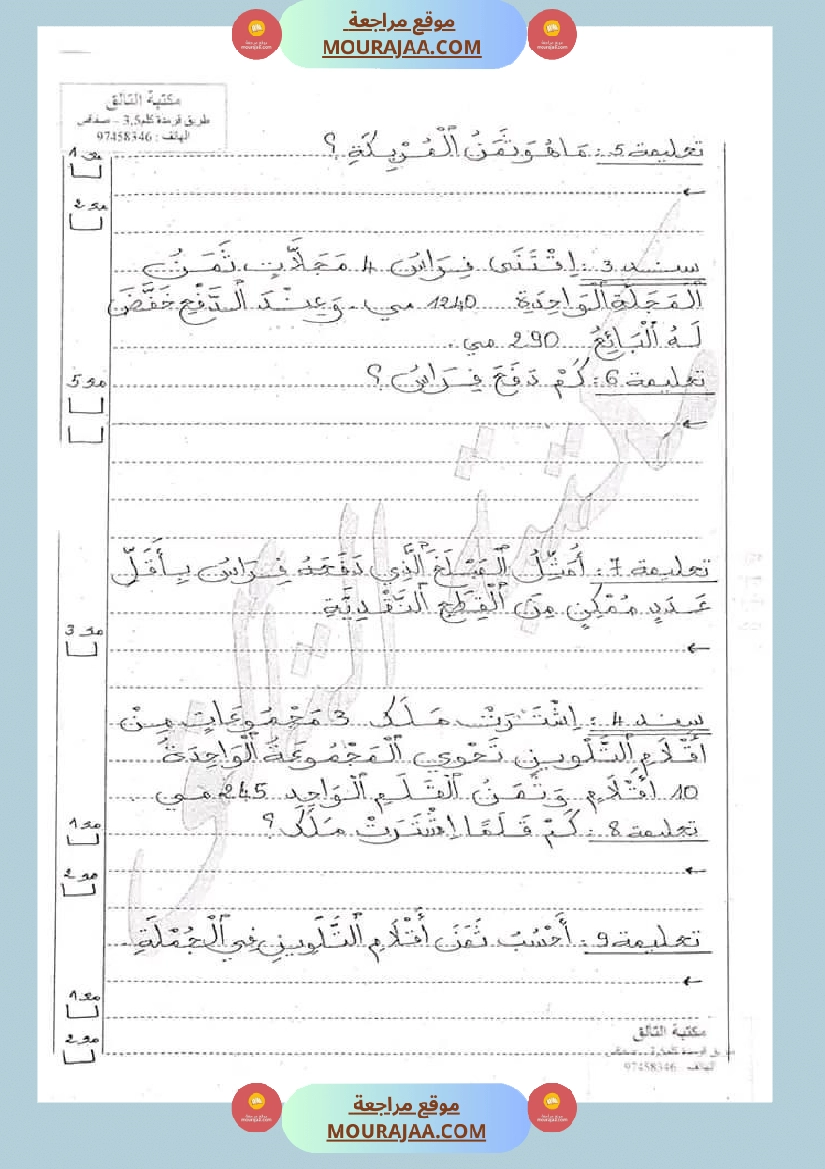 موقع مراجعة
MOURAJAA.COM
مكتبة التألق
طريق قرمدة كلم3,5 – صفاقس
الهاتف : 97458346
تعليمة 5 : مَا هُوَ ثَمَنُ الْمُرَبِّكَةِ ؟
مع 1
مع 2
سند 3 : اِقْتَنَى فِرَاسُ 4 مَجَلَّاتٍ ثَمَنُ
الْمَجَلَّةِ الْوَاحِدَةِ 1240 مي . وَعِنْدَ الدَّفْعِ خَفَّضَ
لَهُ الْبَائِعُ 290 مي .
تعليمة 6 : كَمْ دَفَعَ فِرَاسُ ؟
مع 5
تعليمة 7 : أُمَثِّلُ الْمَبْلَغَ الَّذِي دَفَعَهُ فِرَاسُ بِأَقَلِّ
عَدَدٍ مُمْكِنٍ مِنَ الْقِطَعِ النَّقْدِيَّةِ
مع 3
سند 4 : اِشْتَرَتْ مَلَك 3 مَجْمُوعَاتٍ مِنْ
أَقْلَامِ التَّلْوِينِ تَحْوِي الْمَجْمُوعَةُ الْوَاحِدَةُ
10 أَقْلَامٍ وَثَمَنُ الْقَلَمِ الْوَاحِدِ 245 مي
تعليمة 8 : كَمْ قَلَمًا اِشْتَرَتْ مَلَك ؟
مع 1
مع 2
تعليمة 9 : أَحْسُبُ ثَمَنَ أَقْلَامِ التَّلْوِينِ فِي الْجُمْلَةِ
مع 1
مع 2
مكتبة التألق
الهاتف : 97458346
موقع مراجعة
MOURAJAA.COM